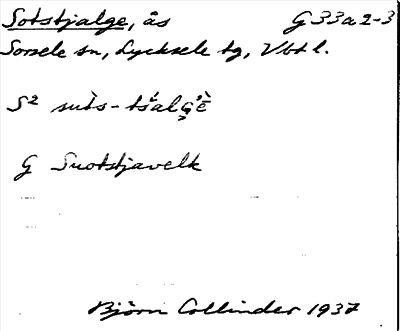 Sotstjalge, ås G 33a 2-3
Sorsele sn, Lycksele tg, Vbtl.
S² su̇ts-tśalģ̣è
G Suotstjavelk
Björn Collinder 1937